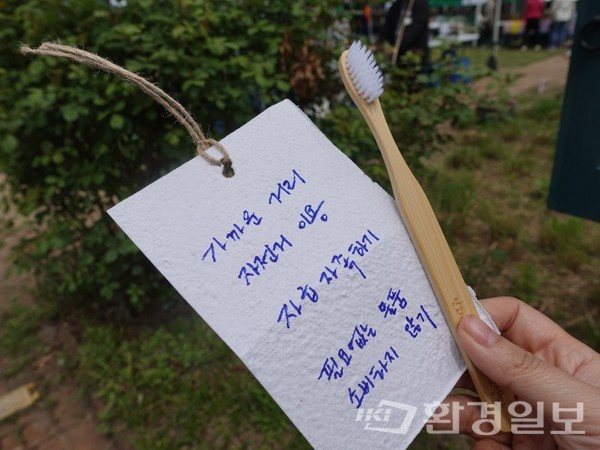 가까운 거리
자전거 이용
자급자족하기
필요없는 물품
소비하지 않기
환경일보